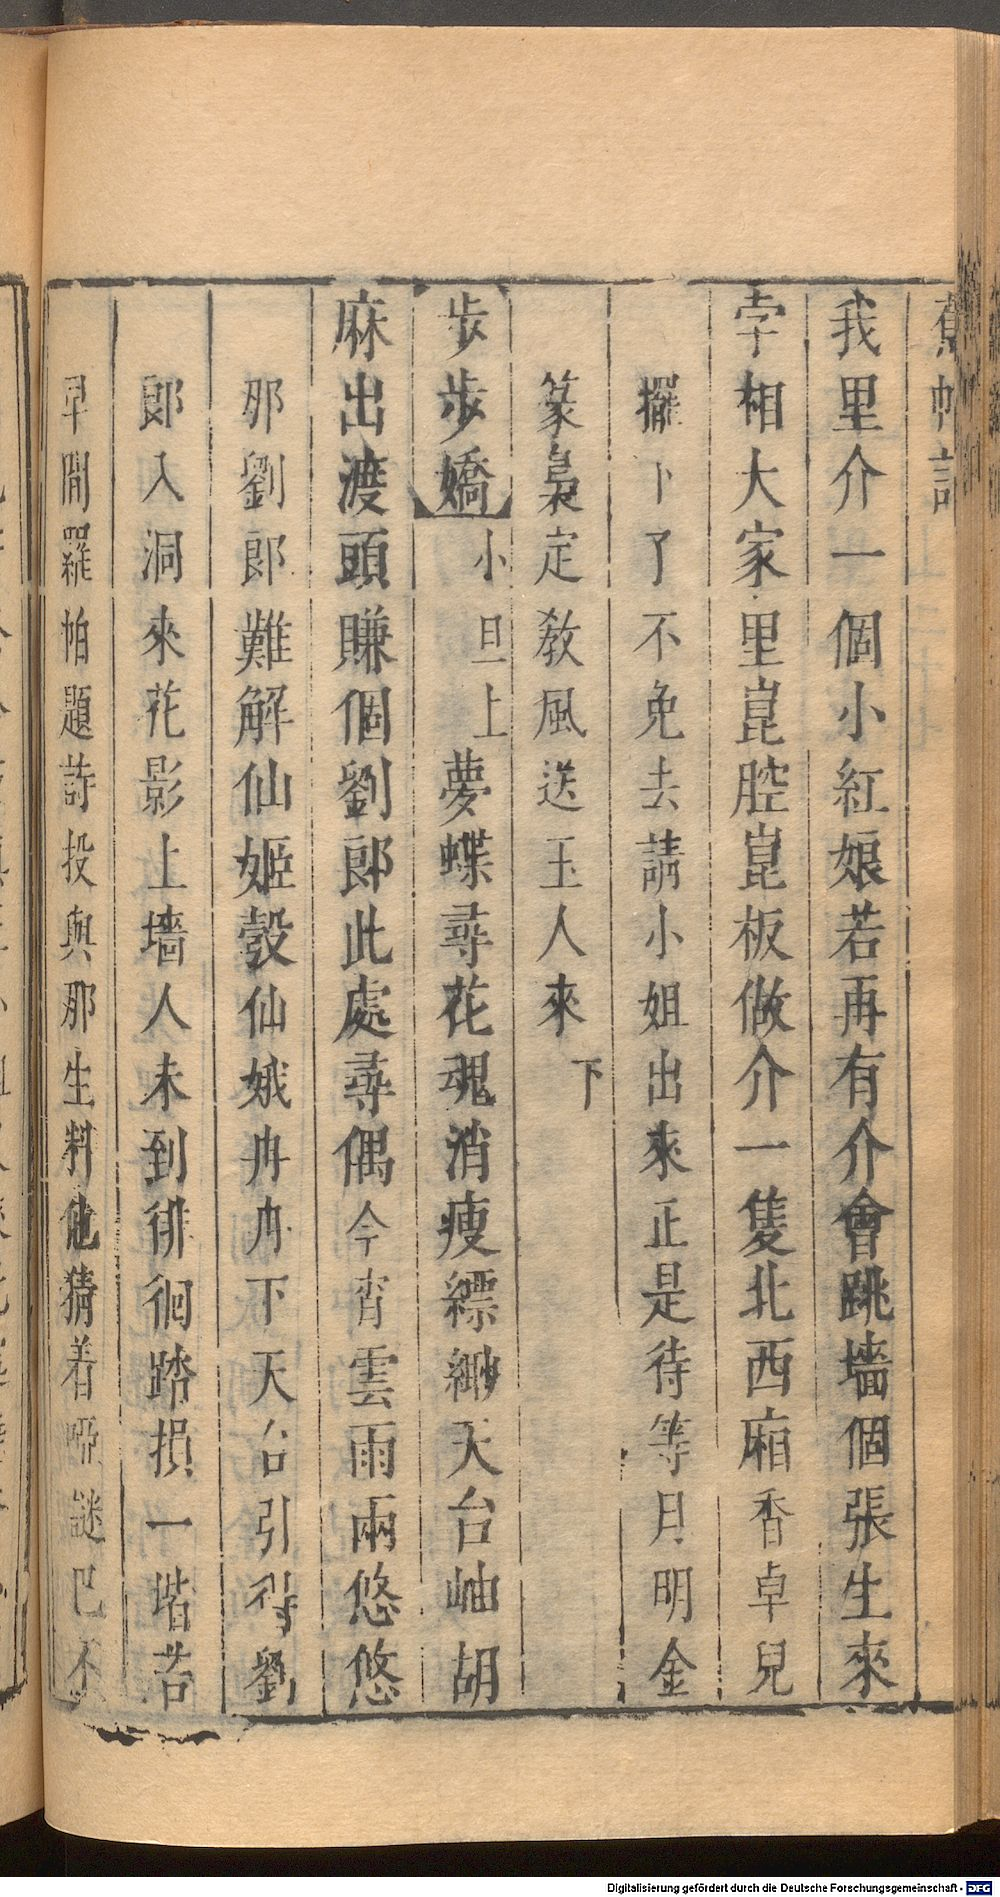 蕉帕記
我里介一個小紅娘若再有介會跳墻個張生來
孛相大家里崑腔崑板做介一隻北西廂香卓兒
擺卜了不免去請小姐出來正是待等月明金
篆裊定敎風送玉人來 下
步步嬌 小旦上 夢蝶尋花魂消瘦縹緲天台岫胡
麻出渡頭賺個劉郎此處尋偶今宵雲雨兩悠悠
那劉郎難解仙姬彀仙娥冉冉下天台引得劉
郎入洞來花影上墻人未到徘徊踏損一堦苔
早間羅帕題詩投與那生料他猜着啞謎巴不
Digitalisierung gefördert durch die Deutsche Forschungsgemeinschaft - DFG